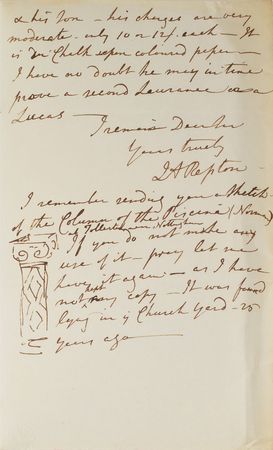 & his Son - his charges are very
moderate. only 10 or 12/. each - It
is in Chalk upon coloured paper -
I have no doubt he may in time
prove a second Lawrance or a
Lucas -
I remain Dear Sir
Yours truely
J A Repton
I remember sending you a Sketch
of the Column of the Piscina (Norman)
at Nottm.
If you do not make any
use of it - pray let me
have it again - as I have
not kept any copy - It was found
lying in ye Church Yard - 25
years ago -